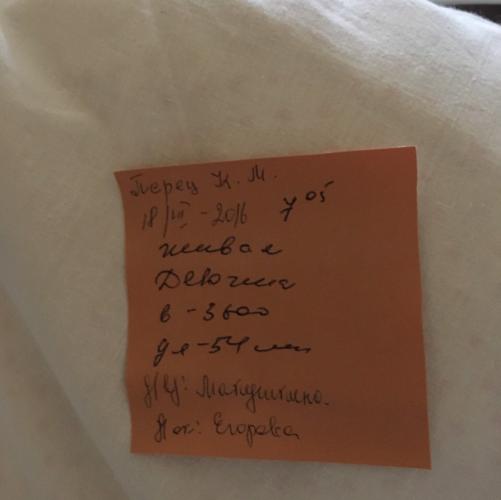 Перец К. М.
18/III - 2016 7 05
живая
Девочка
в - 3600
дл - 54 см
Матушкина.
Егорова